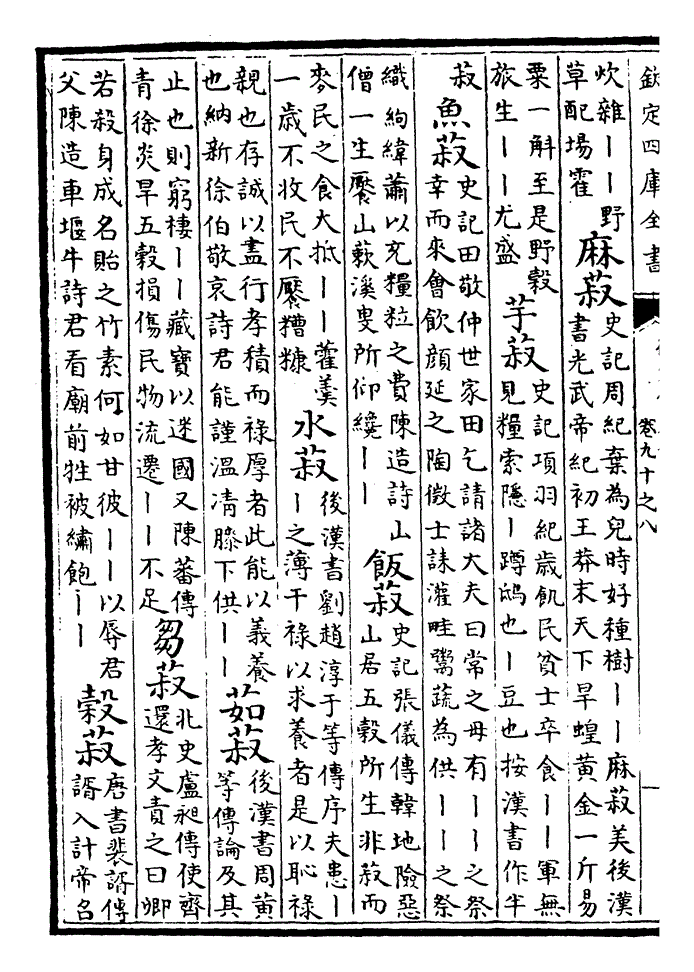 欽定四庫全書
卷九十之八
炊雜丨丨野
草配場霍
麻菽
史記周紀棄為兒時好種樹丨丨麻菽美後漢
書光武帝紀初王莽末天下旱蝗黃金一斤易
粟一斛至是野穀
旅生丨丨尤盛
芋菽
史記項羽紀歲飢民貧士卒食丨丨軍無
見糧索隱丨蹲鴟也丨豆也按漢書作半
菽
魚菽
史記田敬仲世家田乞請諸大夫曰常之母有丨丨之祭
幸而來會飲顏延之陶徵士誄灌畦鬻蔬為供丨丨之祭
織絇緯蕭以充糧粒之費陳造詩山
僧一生饜山蔌溪叟所仰纔丨丨
飯菽
史記張儀傳韓地險惡
山居五穀所生非菽而
麥民之食大抵丨丨藿羮
一歲不收民不饜糟糠
水菽
後漢書劉趙淳于等傳序夫患丨
丨之薄干祿以求養者是以恥祿
親也存誠以盡行孝積而祿厚者此能以義養
也納新徐伯敬哀詩君能謹溫凊滕下供丨丨
茹菽
後漢書周黃
等傳論及其
止也則窮棲丨丨藏寶以迷國又陳蕃傳
青徐炎旱五穀損傷民物流遷丨丨不足
芻菽
北史盧昶傳使齊
還孝文責之曰卿
若殺身成名貽之竹素何如甘彼丨丨以辱君
父陳造車堰牛詩君看廟前牲被繡飽丨丨
穀菽
唐書裴諝傳
諝入計帝名